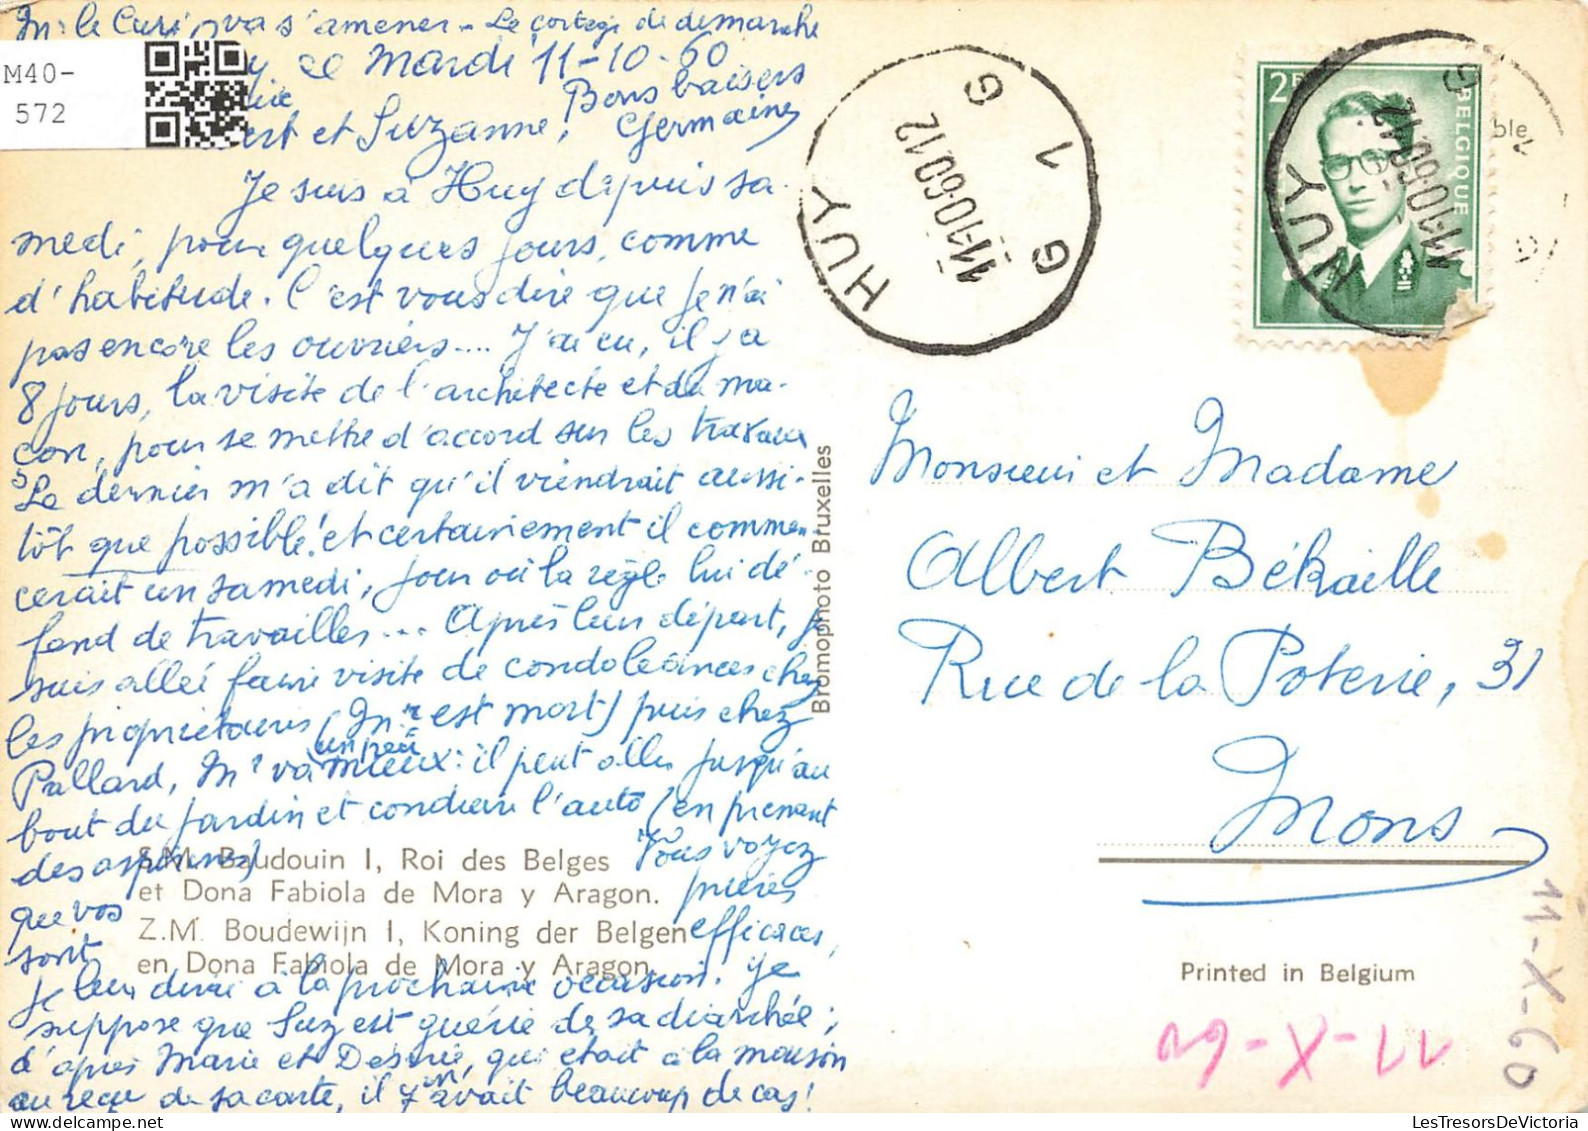 Mr le Curé va s'amener - Le cortège de demarche
M40-
572
y, ce Mardi 11-10-60
Bons baisers
Germaine
ert et Suzanne,
Je suis à Huy depuis sa-
medi, pour quelques jours, comme
d'habitude. C'est vous dire que je n'ai
pas encore les ouvriers.... J'ai eu, il y a
8 jours, la visite de l'architecte et du ma-
çon, pour se mettre d'accord sur les travaux
Le dernier m'a dit qu'il viendrait aussi-
tôt que possible! et certainement il commen-
cerait un samedi, jour où la règle lui dé-
fend de travailler... Après leur départ, je
suis allée faire visite de condoléances chez
les propriétaires (Mr est mort) puis chez
Pallard, Mr va un peu mieux: il peut aller jusqu'au
bout du jardin et conduire l'auto (en prenant
des aspirines)
Vous voyez
que vos
prières
sont
efficaces,
je leur dirai à la prochaine occasion. Je
suppose que Suz est guérie de sa diarrhée;
d'après Marie et Désirée, qui était à la maison
au reçu de sa carte, il y en avait beaucoup de cas!
S.M. Baudouin I, Roi des Belges
et Dona Fabiola de Mora y Aragon.
Z.M. Boudewijn I, Koning der Belgen
en Dona Fabiola de Mora y Aragon.
Bromophoto Bruxelles
HUY
11-10-60.12
G 1 G
2F
BELGIQUE
HUY
11-10-60.12
G
ble
Monsieur et Madame
Albert Békaille
Rue de la Poterie, 31
Mons
Printed in Belgium
11-X-60
11-X-60
LesTresorsDeVictoria